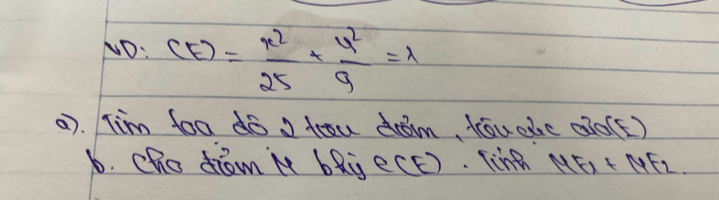 VD: (E) = x²/25 + y²/9 = 1
a). Tìm toạ độ 2 tiêu điểm, tiêu cự của (E)
b. Cho điểm M bkỳ ∈ (E). Tính MF₁ + MF₂.